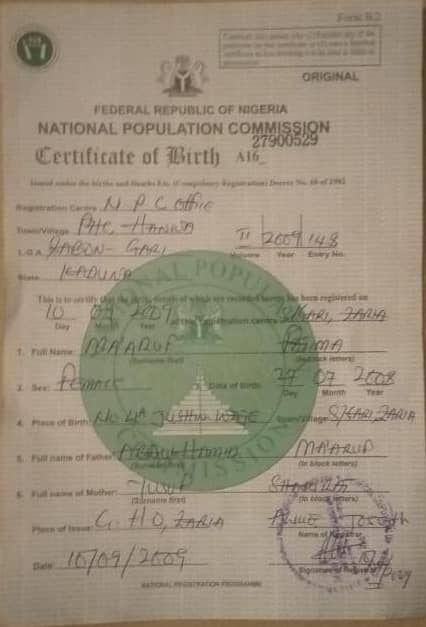 Form B.2
ORIGINAL
FEDERAL REPUBLIC OF NIGERIA
NATIONAL POPULATION COMMISSION
27900529
Certificate of Birth A16_
Issued under the births and Deaths Etc. (Compulsory Registration) Decree No. 69 of 1992
Registration Centre N P C Office
Town/Village PHC - HANWA
L.G.A. SABON - GARI II 2009 148
Volume Year Entry No.
State KADUNA
This is to certify that the birth, details of which are recorded herein has been registered on
10 09 2009 at the registration centre S/GARI, ZARIA
Day Month Year
1. Full Name: MA'ARUF FATIMA
(Surname first) (In block letters)
2. Sex: Female 3. Date of Birth: 27 07 2008
Day Month Year
4. Place of Birth: Town/Village S/GARI ZARIA
5. Full name of Father: ABDULHAMID MA'ARUF
(Surname first) (In block letters)
6. Full name of Mother:
(Surname first) (In block letters)
Place of Issue: ZARIA Joseph
Name of Registrar
Date: 10/09/2009
Signature of Registrar
NATIONAL REGISTRATION PROGRAMME